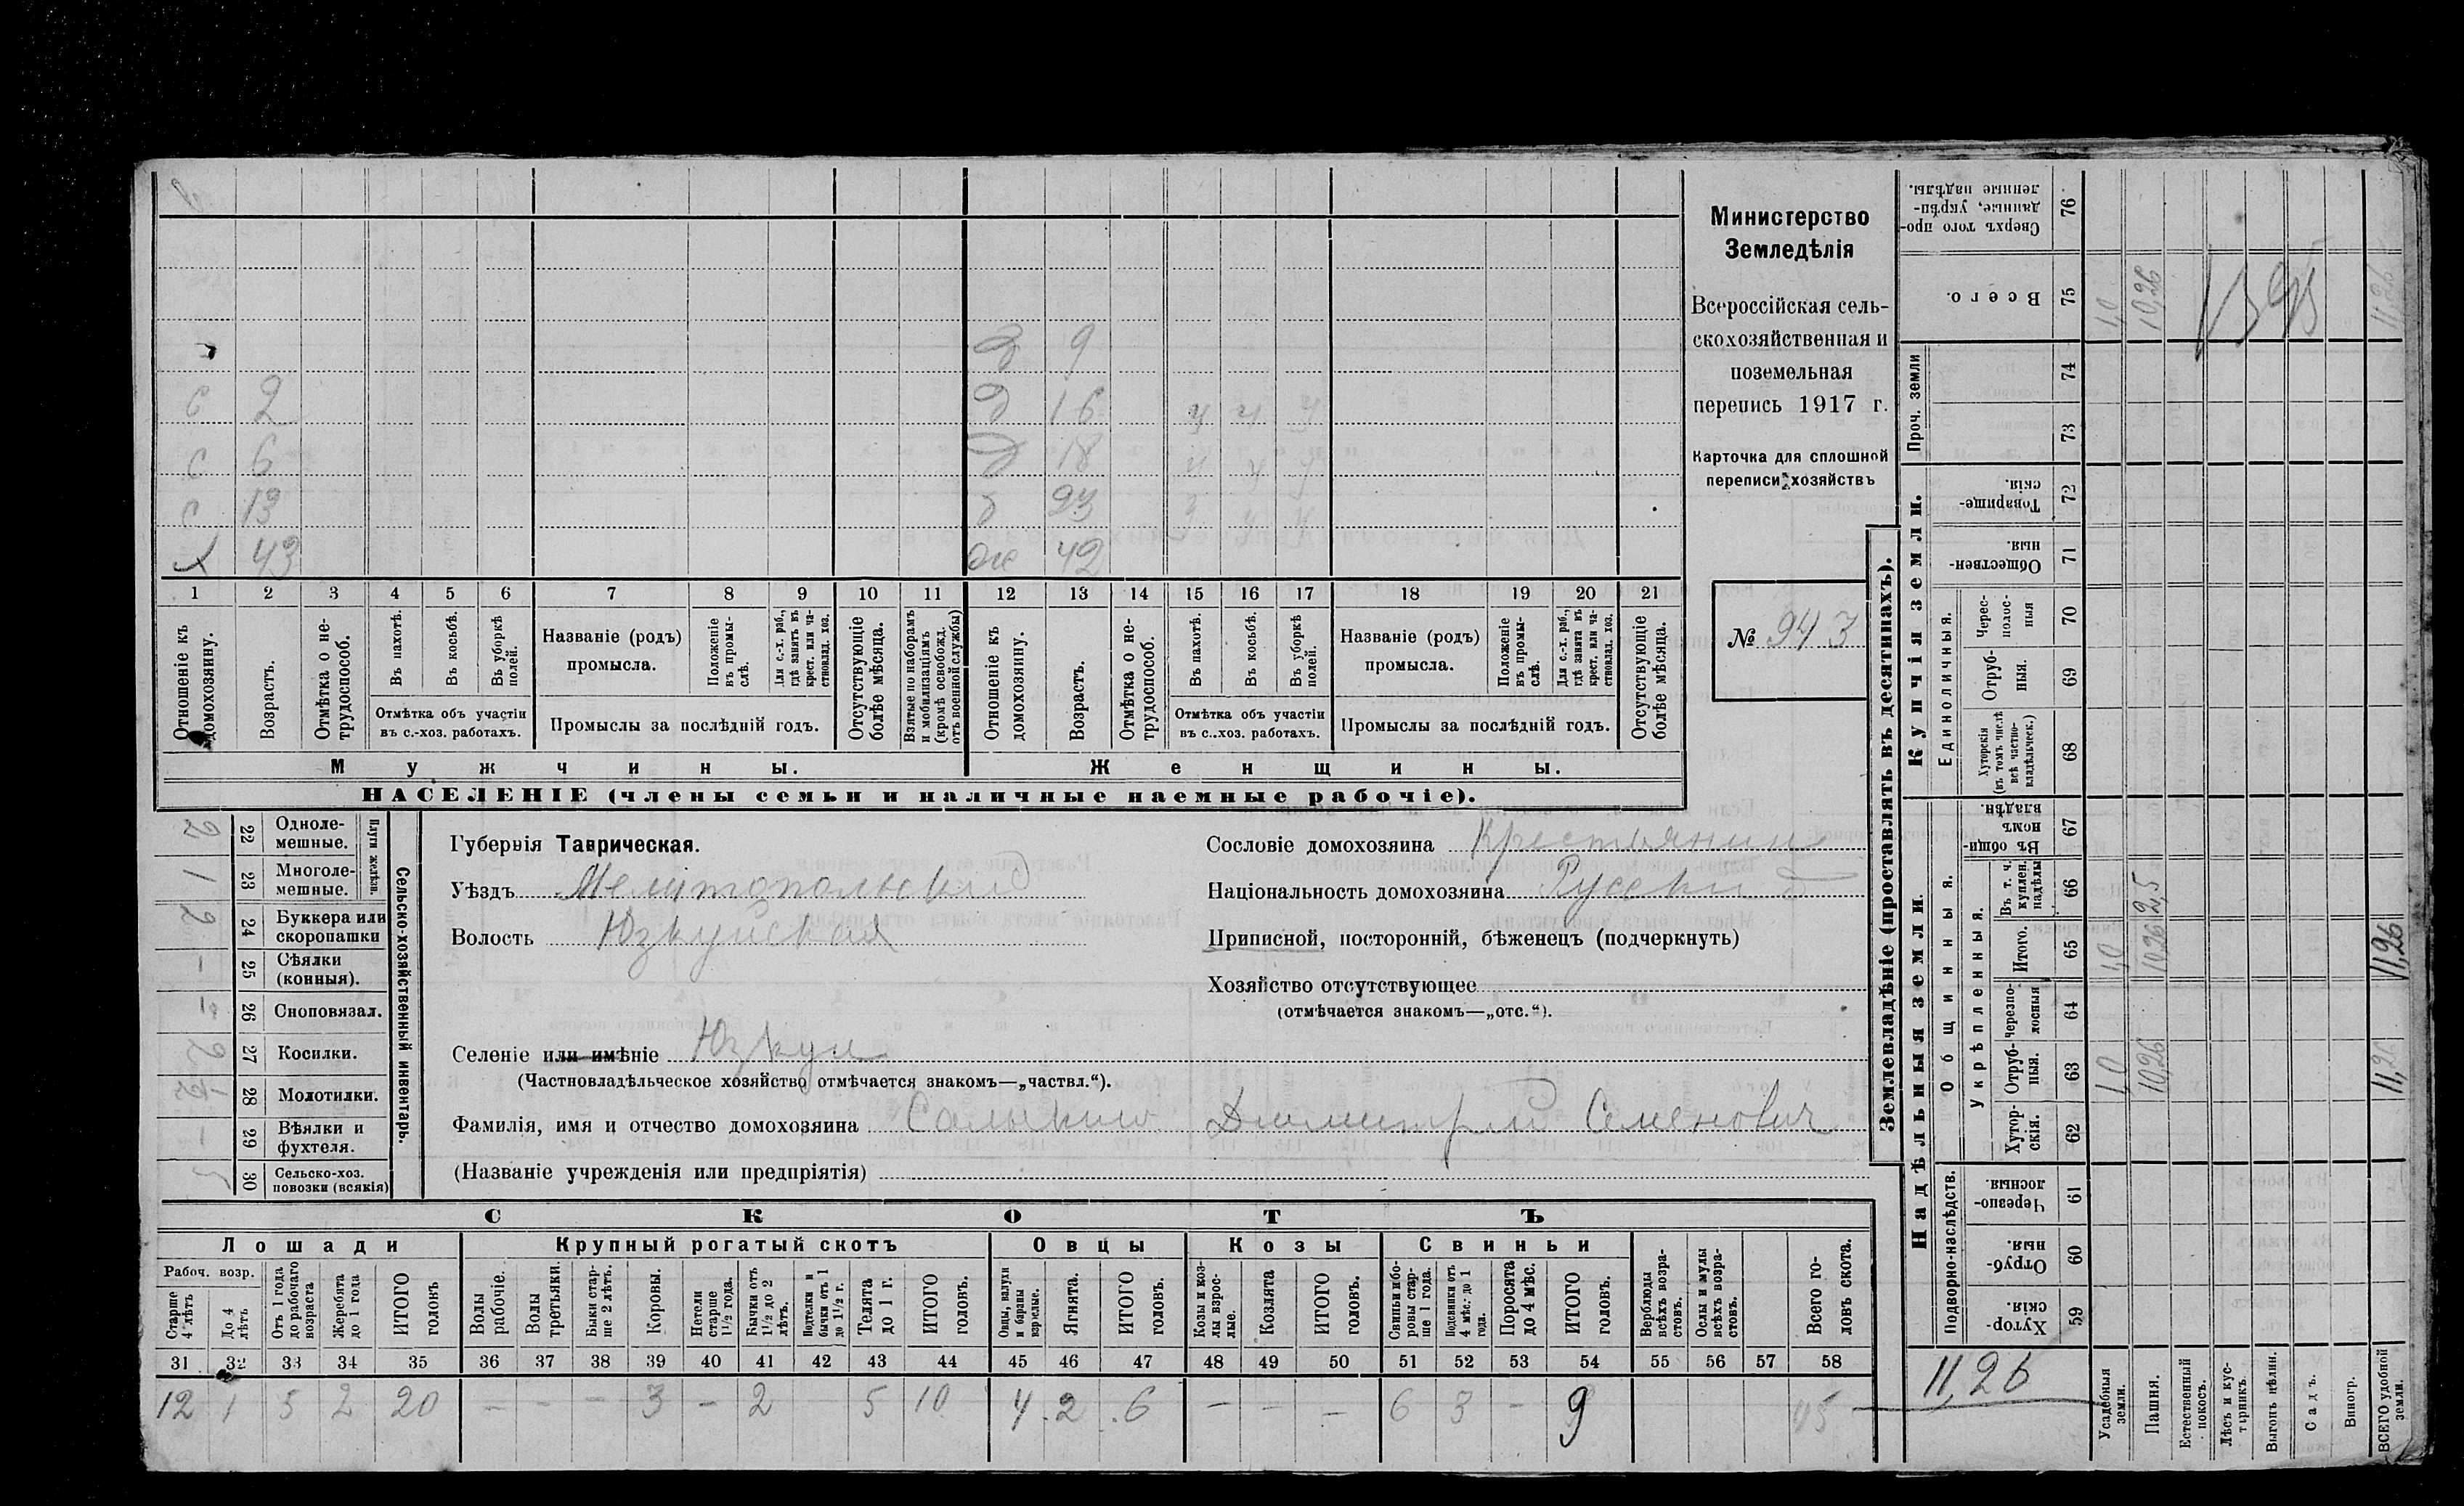 Министерство
Земледѣлія
Всероссійская сель-
скохозяйственная и
поземельная
перепись 1917 г.
Карточка для сплошной
переписи хозяйствъ
№ 943
д 9
с 2 д 16 ч ч ч
с 6 д 18 ч ч ч
с 13 д 23 ч ч ч
х 43 ж 42
1 2 3 4 5 6 7 8 9 10 11 12 13 14 15 16 17 18 19 20 21
Отношеніе къ домохозяину.
Возрастъ.
Отмѣтка о не-трудоспособ.
Въ пахотѣ.
Въ косьбѣ.
Въ уборкѣ полей.
Отмѣтка объ участіи въ с.-хоз. работахъ.
Названіе (родъ) промысла.
Положеніе въ промы-слѣ.
Для с.-х. раб., гдѣ занятъ въ крест. или ча-стновлад. хоз.
Промыслы за послѣдній годъ.
Отсутствующіе болѣе мѣсяца.
Взятые по наборамъ и мобилизаціямъ (кромѣ освобожд. отъ военной службы)
Отношеніе къ домохозяину.
Возрастъ.
Отмѣтка о не-трудоспособ.
Въ пахотѣ.
Въ косьбѣ.
Въ уборкѣ полей.
Отмѣтка объ участіи въ с.-хоз. работахъ.
Названіе (родъ) промысла.
Положеніе въ промы-слѣ.
Для с.-х. раб., гдѣ занята въ крест. или ча-стновлад. хоз.
Промыслы за послѣдній годъ.
Отсутствующіе болѣе мѣсяца.
Мужчины. Женщины.
НАСЕЛЕНІЕ (члены семьи и наличные наемные рабочіе).
Сельско-хозяйственный инвентарь.
Плуги желѣзн.
2 22 Одноле-мешные.
1 23 Многоле-мешные.
2 24 Буккера или скоропашки
- 25 Сѣялки (конныя).
26 Сноповязал.
27 Косилки.
28 Молотилки.
- 29 Вѣялки и фухтеля.
30 Сельско-хоз. повозки (всякія)
Губернія Таврическая.
Уѣздъ Мелитопольский
Волость Юзкуйская
Селеніе или имѣніе Юзкуи
(Частновладѣльческое хозяйство отмѣчается знакомъ—„частвл.“).
Фамилія, имя и отчество домохозяина Дмитрий Семенович
(Названіе учрежденія или предпріятія)
Сословіе домохозяина Крестьянин
Національность домохозяина Русский
Приписной, посторонній, бѣженецъ (подчеркнуть)
Хозяйство отсутствующее
(отмѣчается знакомъ—„отс.“).
СКОТЪ
Лошади Крупный рогатый скотъ Овцы Козы Свиньи
Рабоч. возр.
Старше 4 лѣтъ
До 4 лѣтъ
Отъ 1 года до рабочаго возраста
Жеребята до 1 года
ИТОГО головъ
Волы рабочіе.
Волы третьяки.
Быки стар-ше 2 лѣтъ.
Коровы.
Нетели старше 1½ года.
Бычки отъ 1½ до 2 лѣтъ.
Подтелки и бычки отъ 1 до 1½ г.
Телята до 1 г.
ИТОГО головъ.
Овцы, валухи и бараны взрослые.
Ягнята.
ИТОГО головъ.
Козы и коз-лы взрос-лые.
Козлята
ИТОГО головъ.
Свиньи и бо-ровы стар-ше 1 года.
Подсвинки отъ 4 мѣс. до 1 года.
Поросята до 4 мѣс.
ИТОГО головъ.
Верблюды всѣхъ возра-стовъ.
Ослы и мулы всѣхъ возра-стовъ.
Всего го-ловъ скота.
31 32 33 34 35 36 37 38 39 40 41 42 43 44 45 46 47 48 49 50 51 52 53 54 55 56 57 58
12 1 5 2 20 - - - 3 - 2 5 10 4 2 6 - - - 6 3 - 9 45
Землевладѣніе (проставлять въ десятинахъ).
Надѣльныя земли. Купчія земли. Проч. земли
Подворно-наслѣдств.
Общинныя.
Укрѣпленныя.
Единоличныя.
Хутор-скія. 59
Отруб-ныя. 60
Черезпо-лосныя. 61
Хутор-скія. 62
Отруб-ныя. 63
Черезпо-лосныя 64
Итого. 65
Въ т. ч. куплен. надѣлы 66
Въ общин-номъ владѣн. 67
Хуторскія (въ томъ числѣ всѣ частно-владѣльческ.) 68
Отруб-ныя. 69
Черес-полос-ныя 70
Обществен-ныя. 71
Товарище-скія. 72
73
74
Всего. 75
Сверхъ того про-данные, укрѣп-ленные надѣлы. 76
11,26
Усадебныя земли. 1,0 1,0 1,0
Пашня. 10,26 10,26 2,5 10,26
Естественный покосъ.
Лѣсъ и кус-тарникъ.
Выгонъ цѣлин.
Садъ.
Виногр.
ВСЕГО удобной земли. 11,26 11,26 11,26